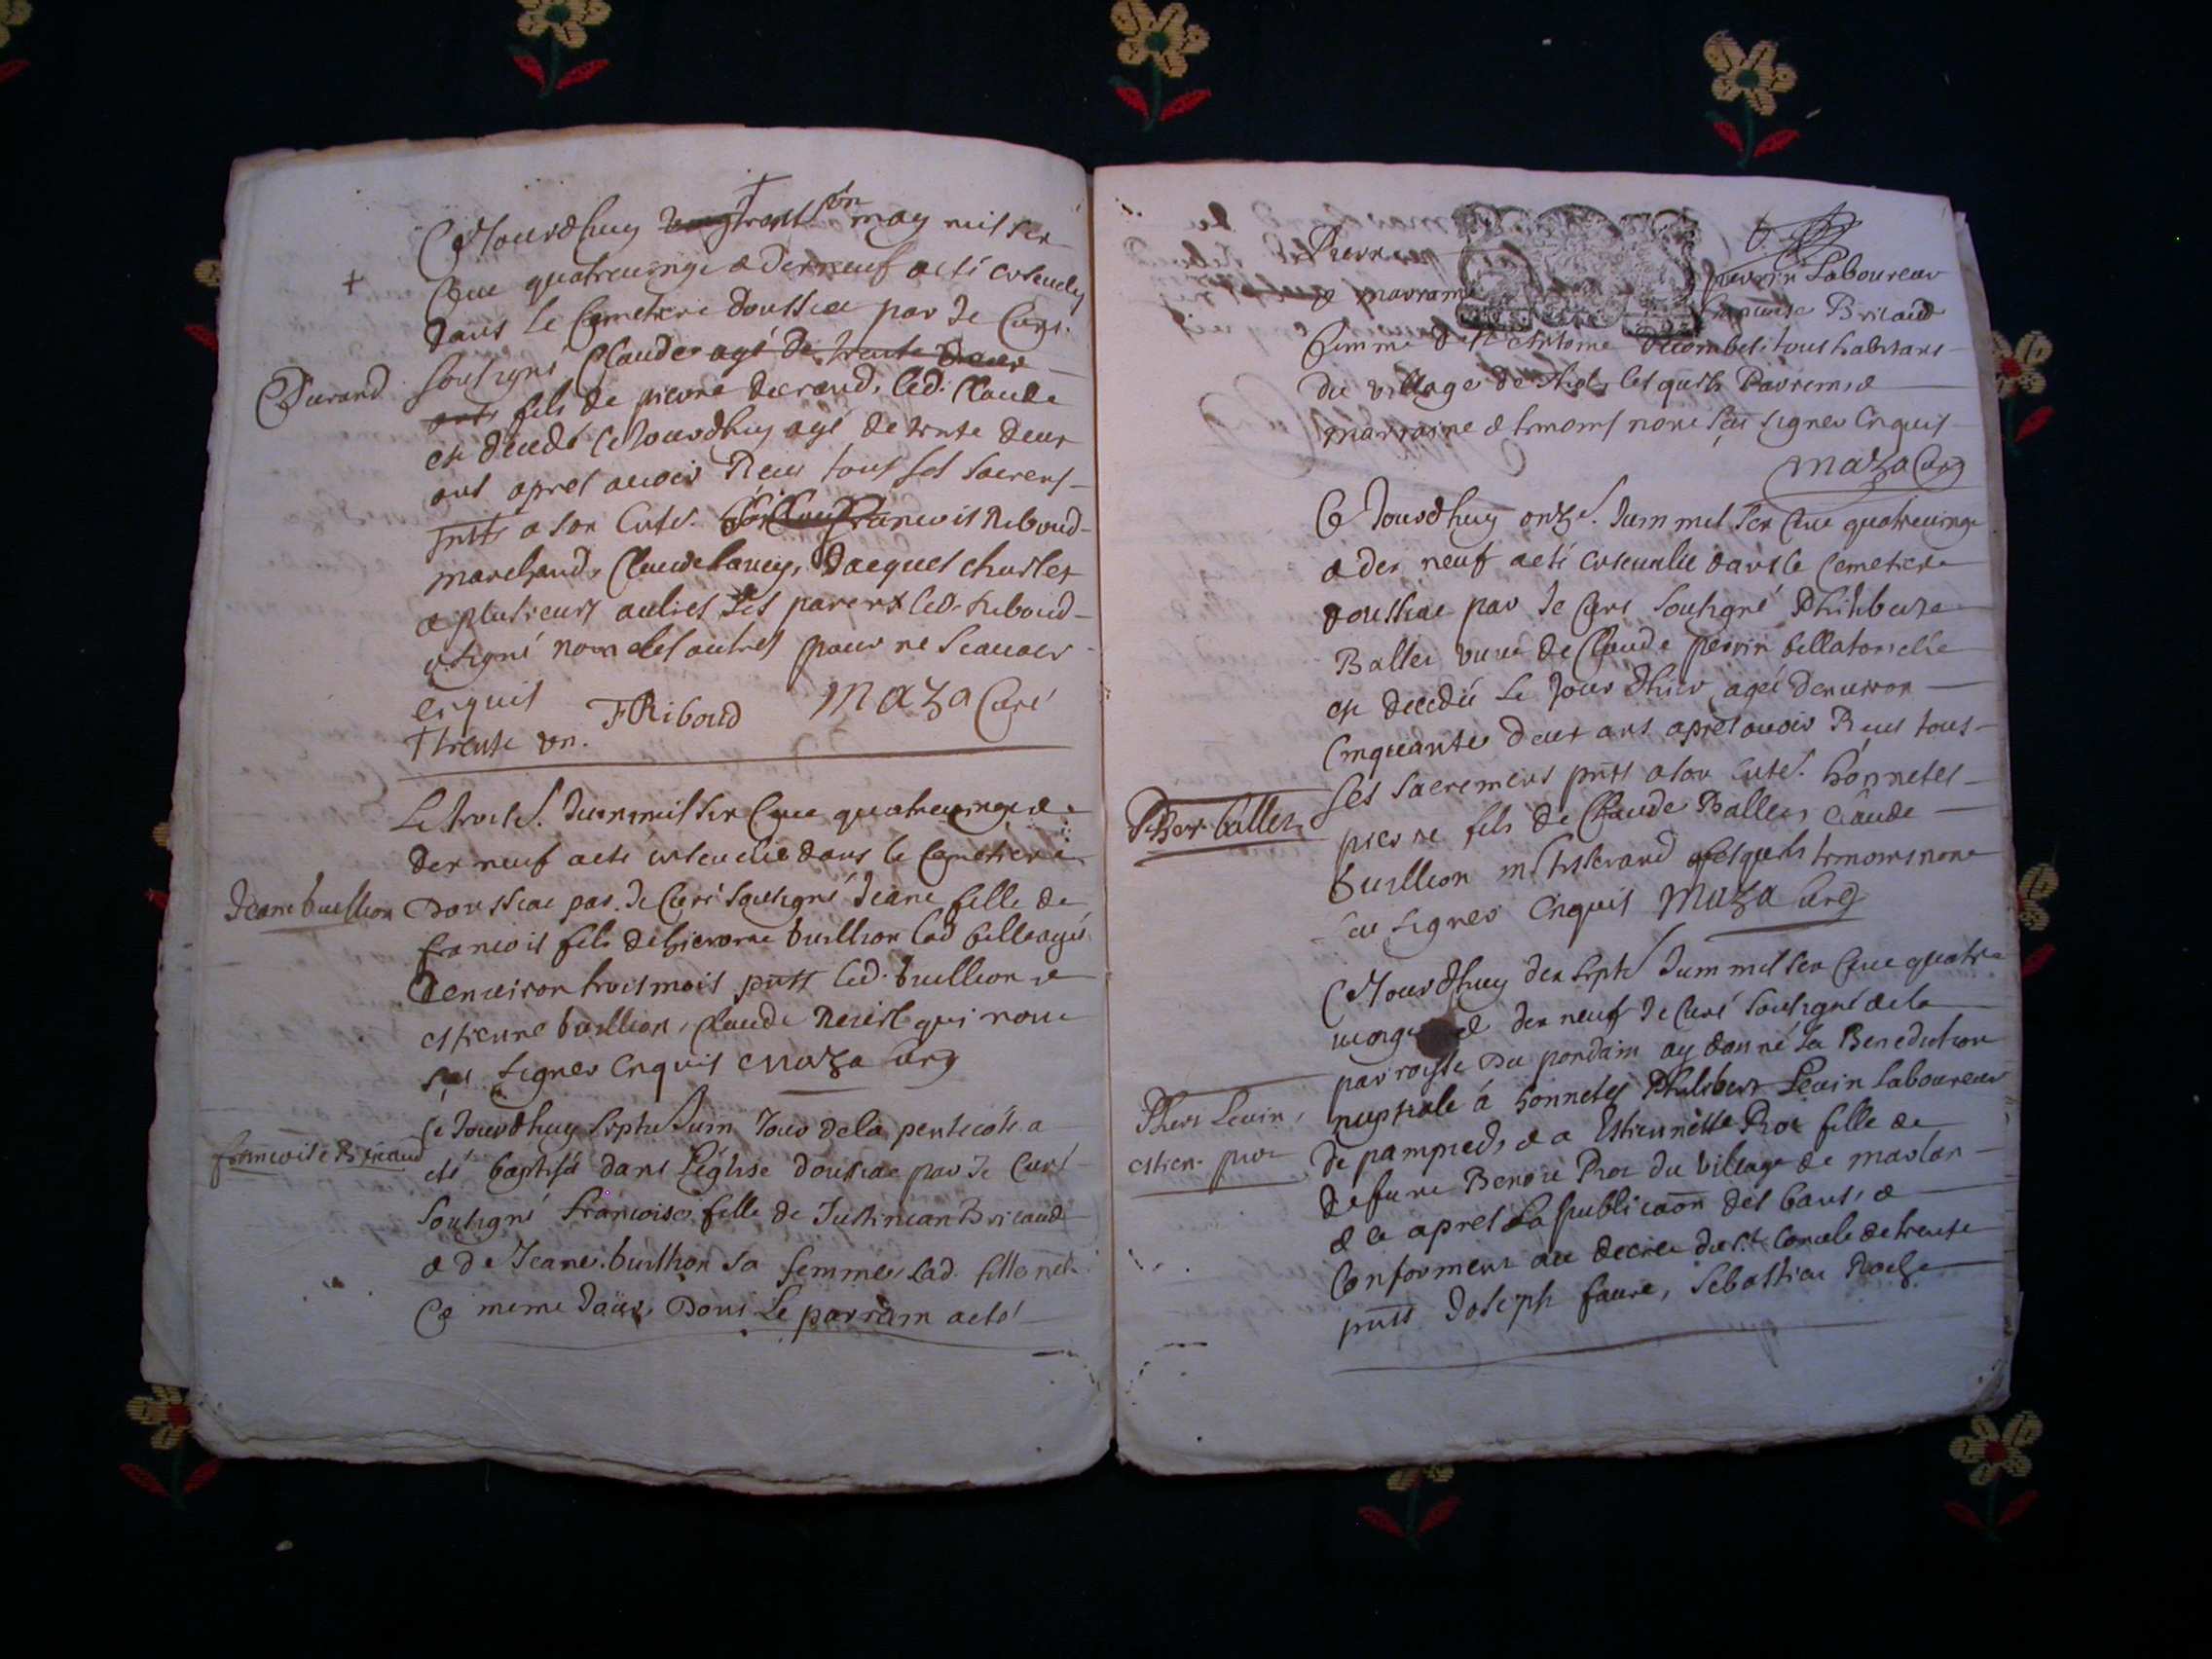 Ce Jourdhuy trent un may mil six
Cens quatrevingt & dix neuf a eté ensevely
dans le Cemetiere doussiat par Je Curé
Durand
soussigné Claude agé de trente deux
ans fils de pierre durand, led. Claude
est decedé ce Jourdhuy agé de trente deux
ans apres avoir Receu tous ses sacrem-
pnts a son ente. francois Riboud
marchand, Claude Jacques charles
& plusieurs autres ses parens led. Riboud
a signé non les autres pour ne scavoir
enquis FRiboud Maza Curé
† trente un.
Le trois e. Juin mil six Cens quatrevingt &
dix neuf a eté ensevelie dans le Cemetiere
Jeane buillion
doussiat par Je Curé soussigné Jeane fille de
francois fils de hierome buillion lad fille agée
denviron trois mois pnts led. buillion &
estienne buillion, Claude qui nont
sceu signer Enquis Maza Curé
Ce Jourdhuy septe Juin Jour de la pentecoste a
francoise Bricaud
eté baptisée dans l'église doussiat par Je Curé
soussigné francoise fille de Justinian Bricaud
& de Jeane buillion sa femme lad. fille née
Ce meme Jour, Dont Le parrain a eté
Pierre perrin Laboureur
& marraine francoise Bricaud
femme d'antoine decombes tous habitans
du village de lesquels Parrein &
marraine & temoins nont sceu signer Enquis
Maza Curé
Ce Jourdhuy onze. Juin mil six Cens quatrevingt
& dix neuf a eté ensevelie dans le Cemetiere
doussiat par Je Curé soussigné Philiberte
Ballet veuve de Claude perrin
est decedée le Jour dhier agée denviron
Cinquante deux ans apres avoir Receu tous
ses sacremens pnts a son ente. honnetes
Phber ballet
pierre fils de Claude Ballet, Claude
buillion me tisserand lesquels temoins nont
sceu signer Enquis Maza Curé
Ce Jourdhuy dix septe Juin mil six Cens quatre
vingt & dix neuf Je Curé soussigné de la
parroisse du pondain ay donné la Benediction
Phert Levin,
nuptiale á honnetes Philibert Levin laboureur
estien. proz
de pampied, & a Estiennette Proz fille de
defunt Benoit Proz du village de
& ce apres La publicaon des bans, &
Conformement au decret du St. Concile de trente
pnts Joseph faure, Sebastien